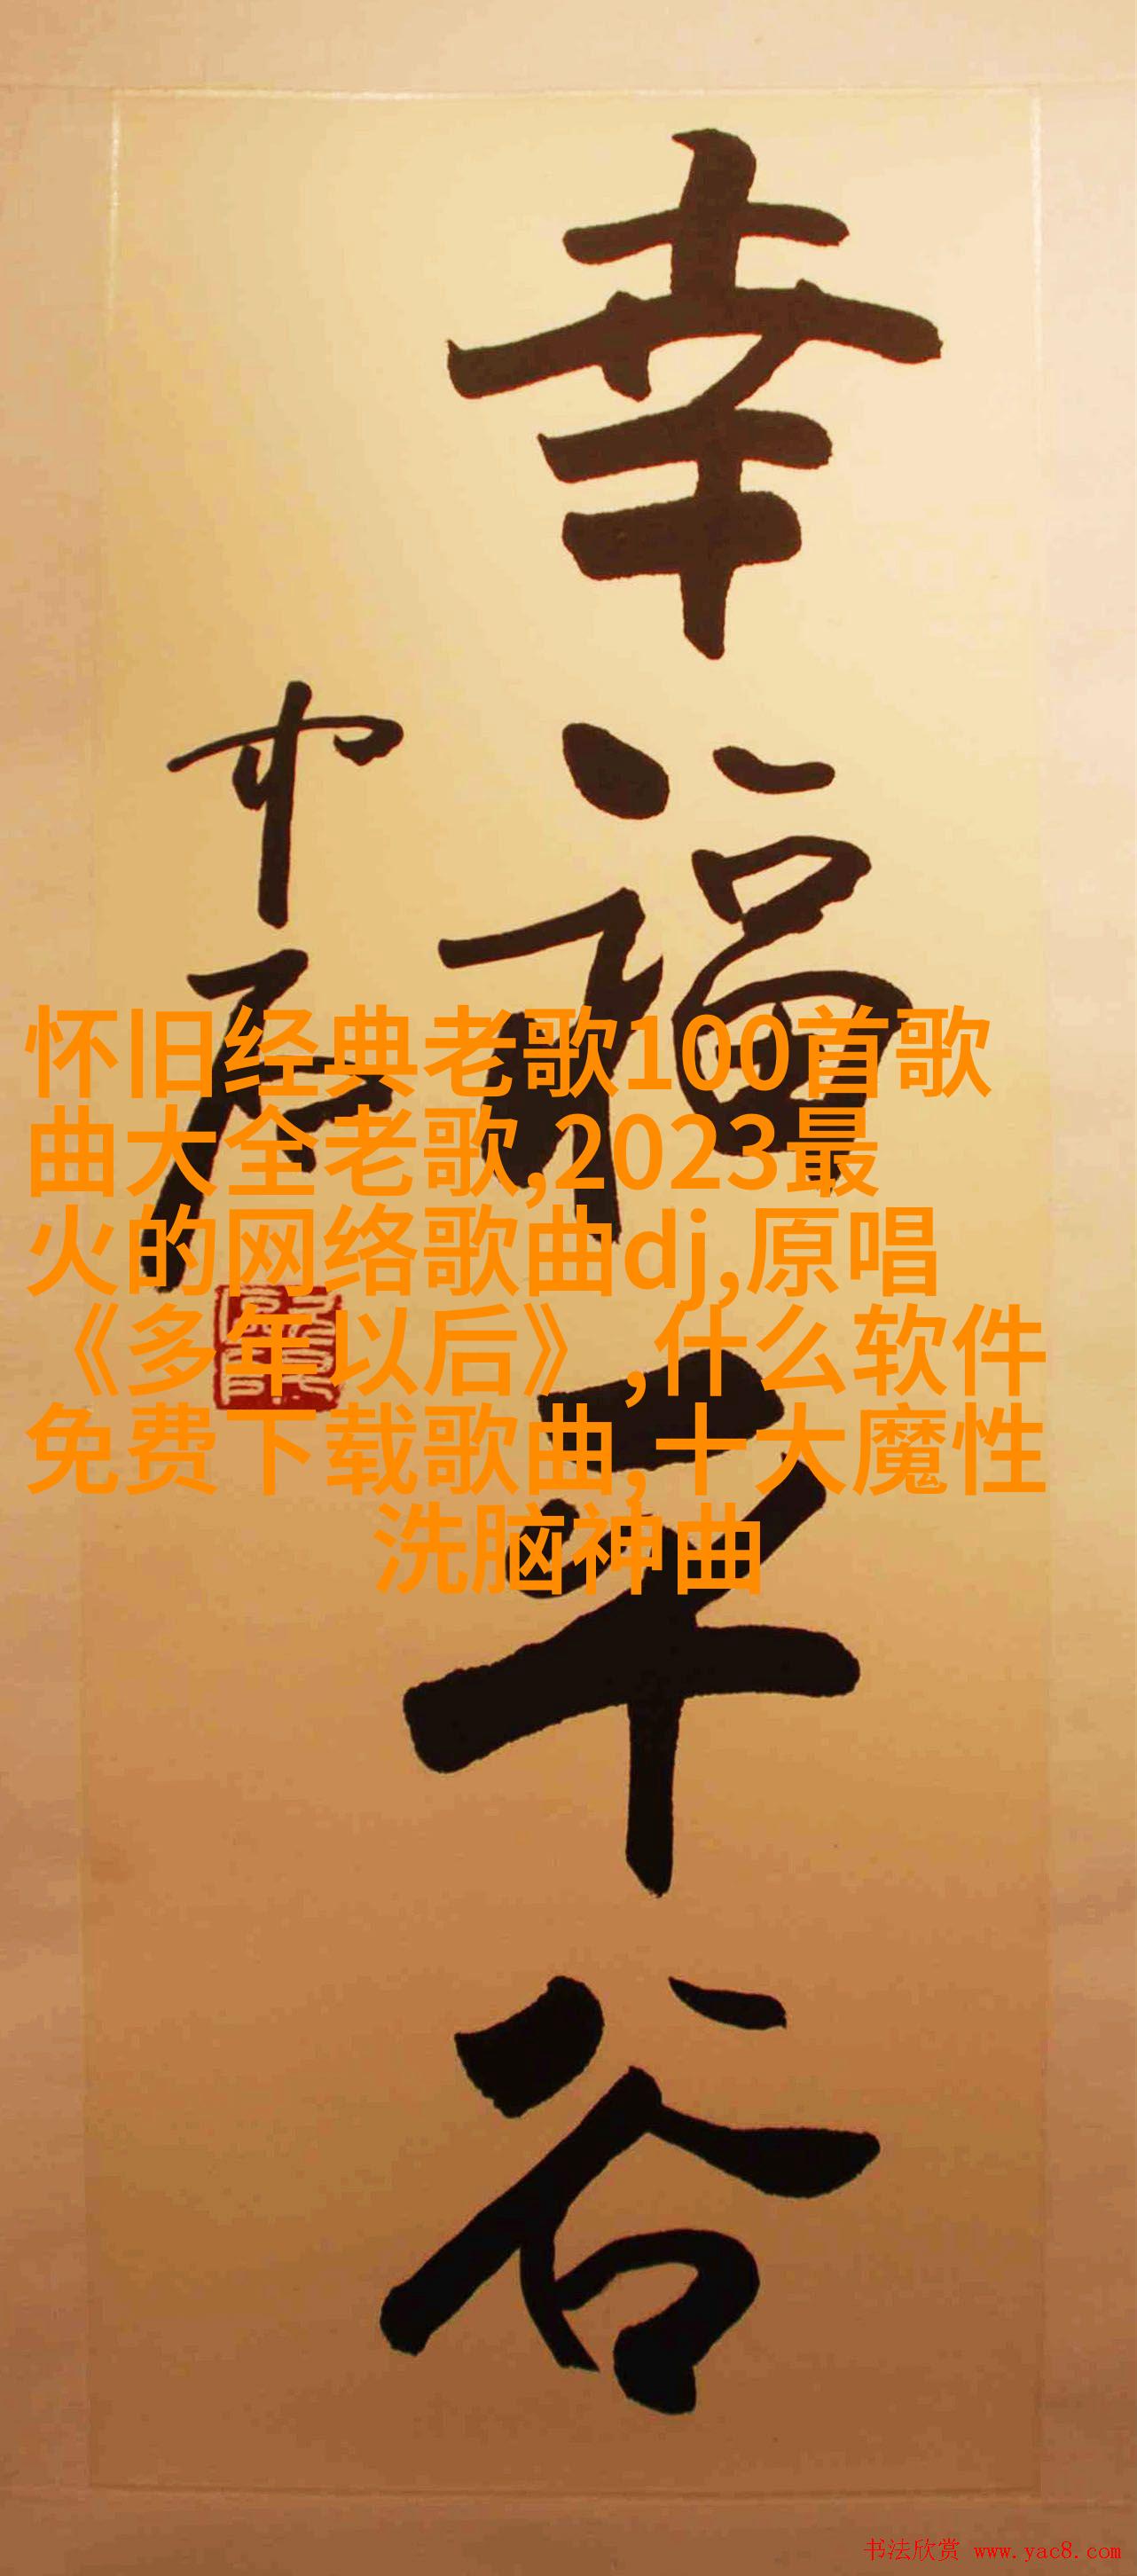 幸福平谷
中石
怀旧经典老歌100首歌
曲大全老歌,2023最
火的网络歌曲dj,原唱
《多年以后》,什么软件
免费下载歌曲,十大魔性
洗脑神曲
书法欣赏 www.yac8.com